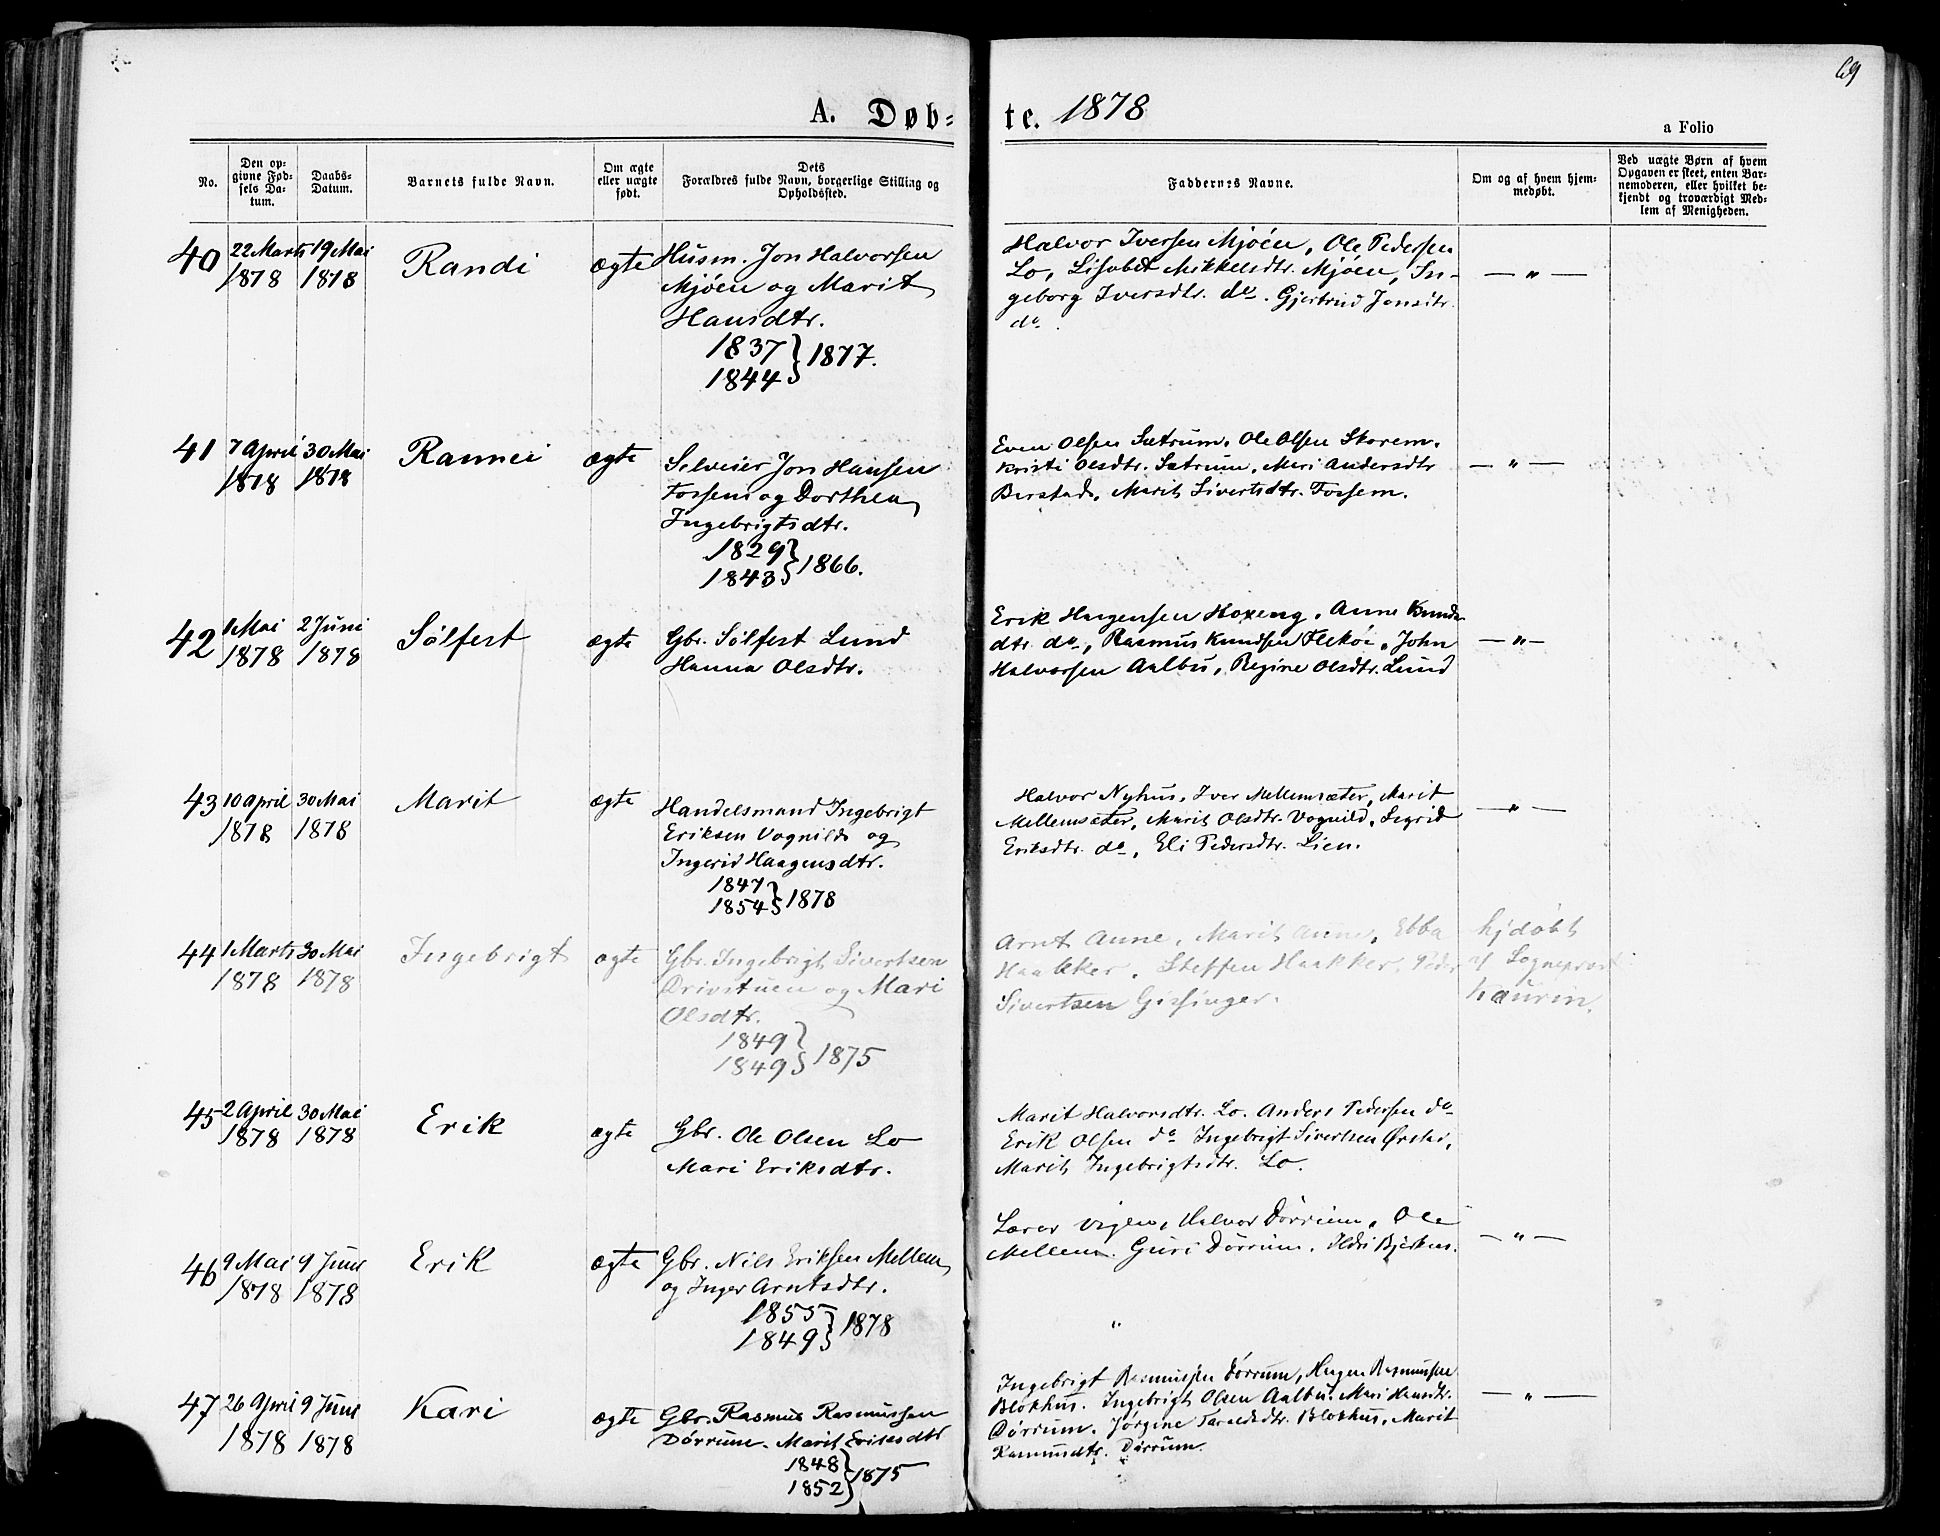 69
A. Døb=
te. 1878
a Folio
No.
Den op-
givne Fød-
sels Da-
tum.
Daabs-
Datum.
Barnets fulde Navn.
Om ægte
eller uægte
født.
Dets
Forældres fulde Navn, borgerlige Stilling og
Opholdssted.
Faddernes Navne.
Om og af hvem hjem-
medøbt.
Ved uægte Børn af hvem
Opgaven er skeet, enten Bar-
nemoderen, eller hvilket be-
kjendt og troværdigt Med-
lem af Menigheden.
40
22 Marts
1878
19 Mai
1878
Randi
ægte
Husm. Jon Halvorsen
Mjöen og Marit
Hansdtr.
1837
1844 } 1877.
Halvor Iversen Mjöen, Ole Pedersen
Lo, Lisabet Mikkelsdtr. Mjöen, In-
geborg Iversdtr. do. Gjertrud Jonsdtr.
do.
— " —
41
7 April
1878
30 Mai
1878
Rannei
ægte
Selveier Jon Hansen
Fossem og Dorthea
Ingebrigtsdtr.
1829
1843 } 1866.
Even Olsen Sætrum, Ole Olsen Skorem,
Kristi Olsdtr. Sætrum, Mari Andersdtr
Berstad, Marit Sivertsdtr. Fossem.
— " —
42
1 Mai
1878
2 Juni
1878
Sölfest
ægte
Gbr. Sölfest Lund
Hanna Olsdtr.
Erik Haagensen Hoxeng, Anne Knuds
dtr. do, Rasmus Knudsen Flekøi, John
Halvorsen Aalbu, Regine Olsdtr. Lund
— " —
43
10 April
1878
30 Mai
1878
Marit
ægte
Handelsmand Ingebrigt
Eriksen Vognild og
Ingerid Haagensdtr.
1847
1854 } 1878
Halvor Nyhus, Iver Mellemsæter, Marit
Mellemsæter, Marit Olsdtr. Vognild, Sigrid
Eriksdtr. do, Eli Pedersdtr. Lien.
— " —
44
1 Marts
1878
30 Mai
1878
Ingebrigt
ægte
Gbr. Ingebrigt Sivertsen
Drivstuen og Mari
Olsdtr.
1849
1849 } 1875
Arnt Aune, Marit Aune, Ebba
Haakker, Steffen Haakker, Peder
Sivertsen Gissinger.
hjdøbt
af Sogneprest
Kaurin.
45
2 April
1878
30 Mai
1878
Erik
ægte
Gbr. Ole Olsen Lo
Mari Eriksdtr.
Marit Halvorsdtr. Lo. Anders Pedersen do
Erik Olsen do Ingebrigt Sivertsen
Marit Ingebrigtsdtr. Lo.
46
9 Mai
1878
9 Juni
1878
Erik
ægte
Gbr. Nils Eriksen Mellem
og Inger Arntsdtr.
1855
1849 } 1878
Lærer Vigen, Halvor Dörrum, Ole
Mellem. Guri Dörrum, Ildri Bjerkaas.
"
— " —
47
26 April
1878
9 Juni
1878
Kari
ægte
Gbr. Rasmus Rasmussen
Dörrum. Marit Eriksdtr
1848
1852 } 1875
Ingebrigt Rasmussen Dörrum, Haagen Rasmussen
Blokhus. Ingebrigt Olsen Aalbu, Mari Hansdtr.
Dörrum. Jörgine Taraldsdtr. Blokhus, Marit
Rasmusdtr. Dörrum.
— " —